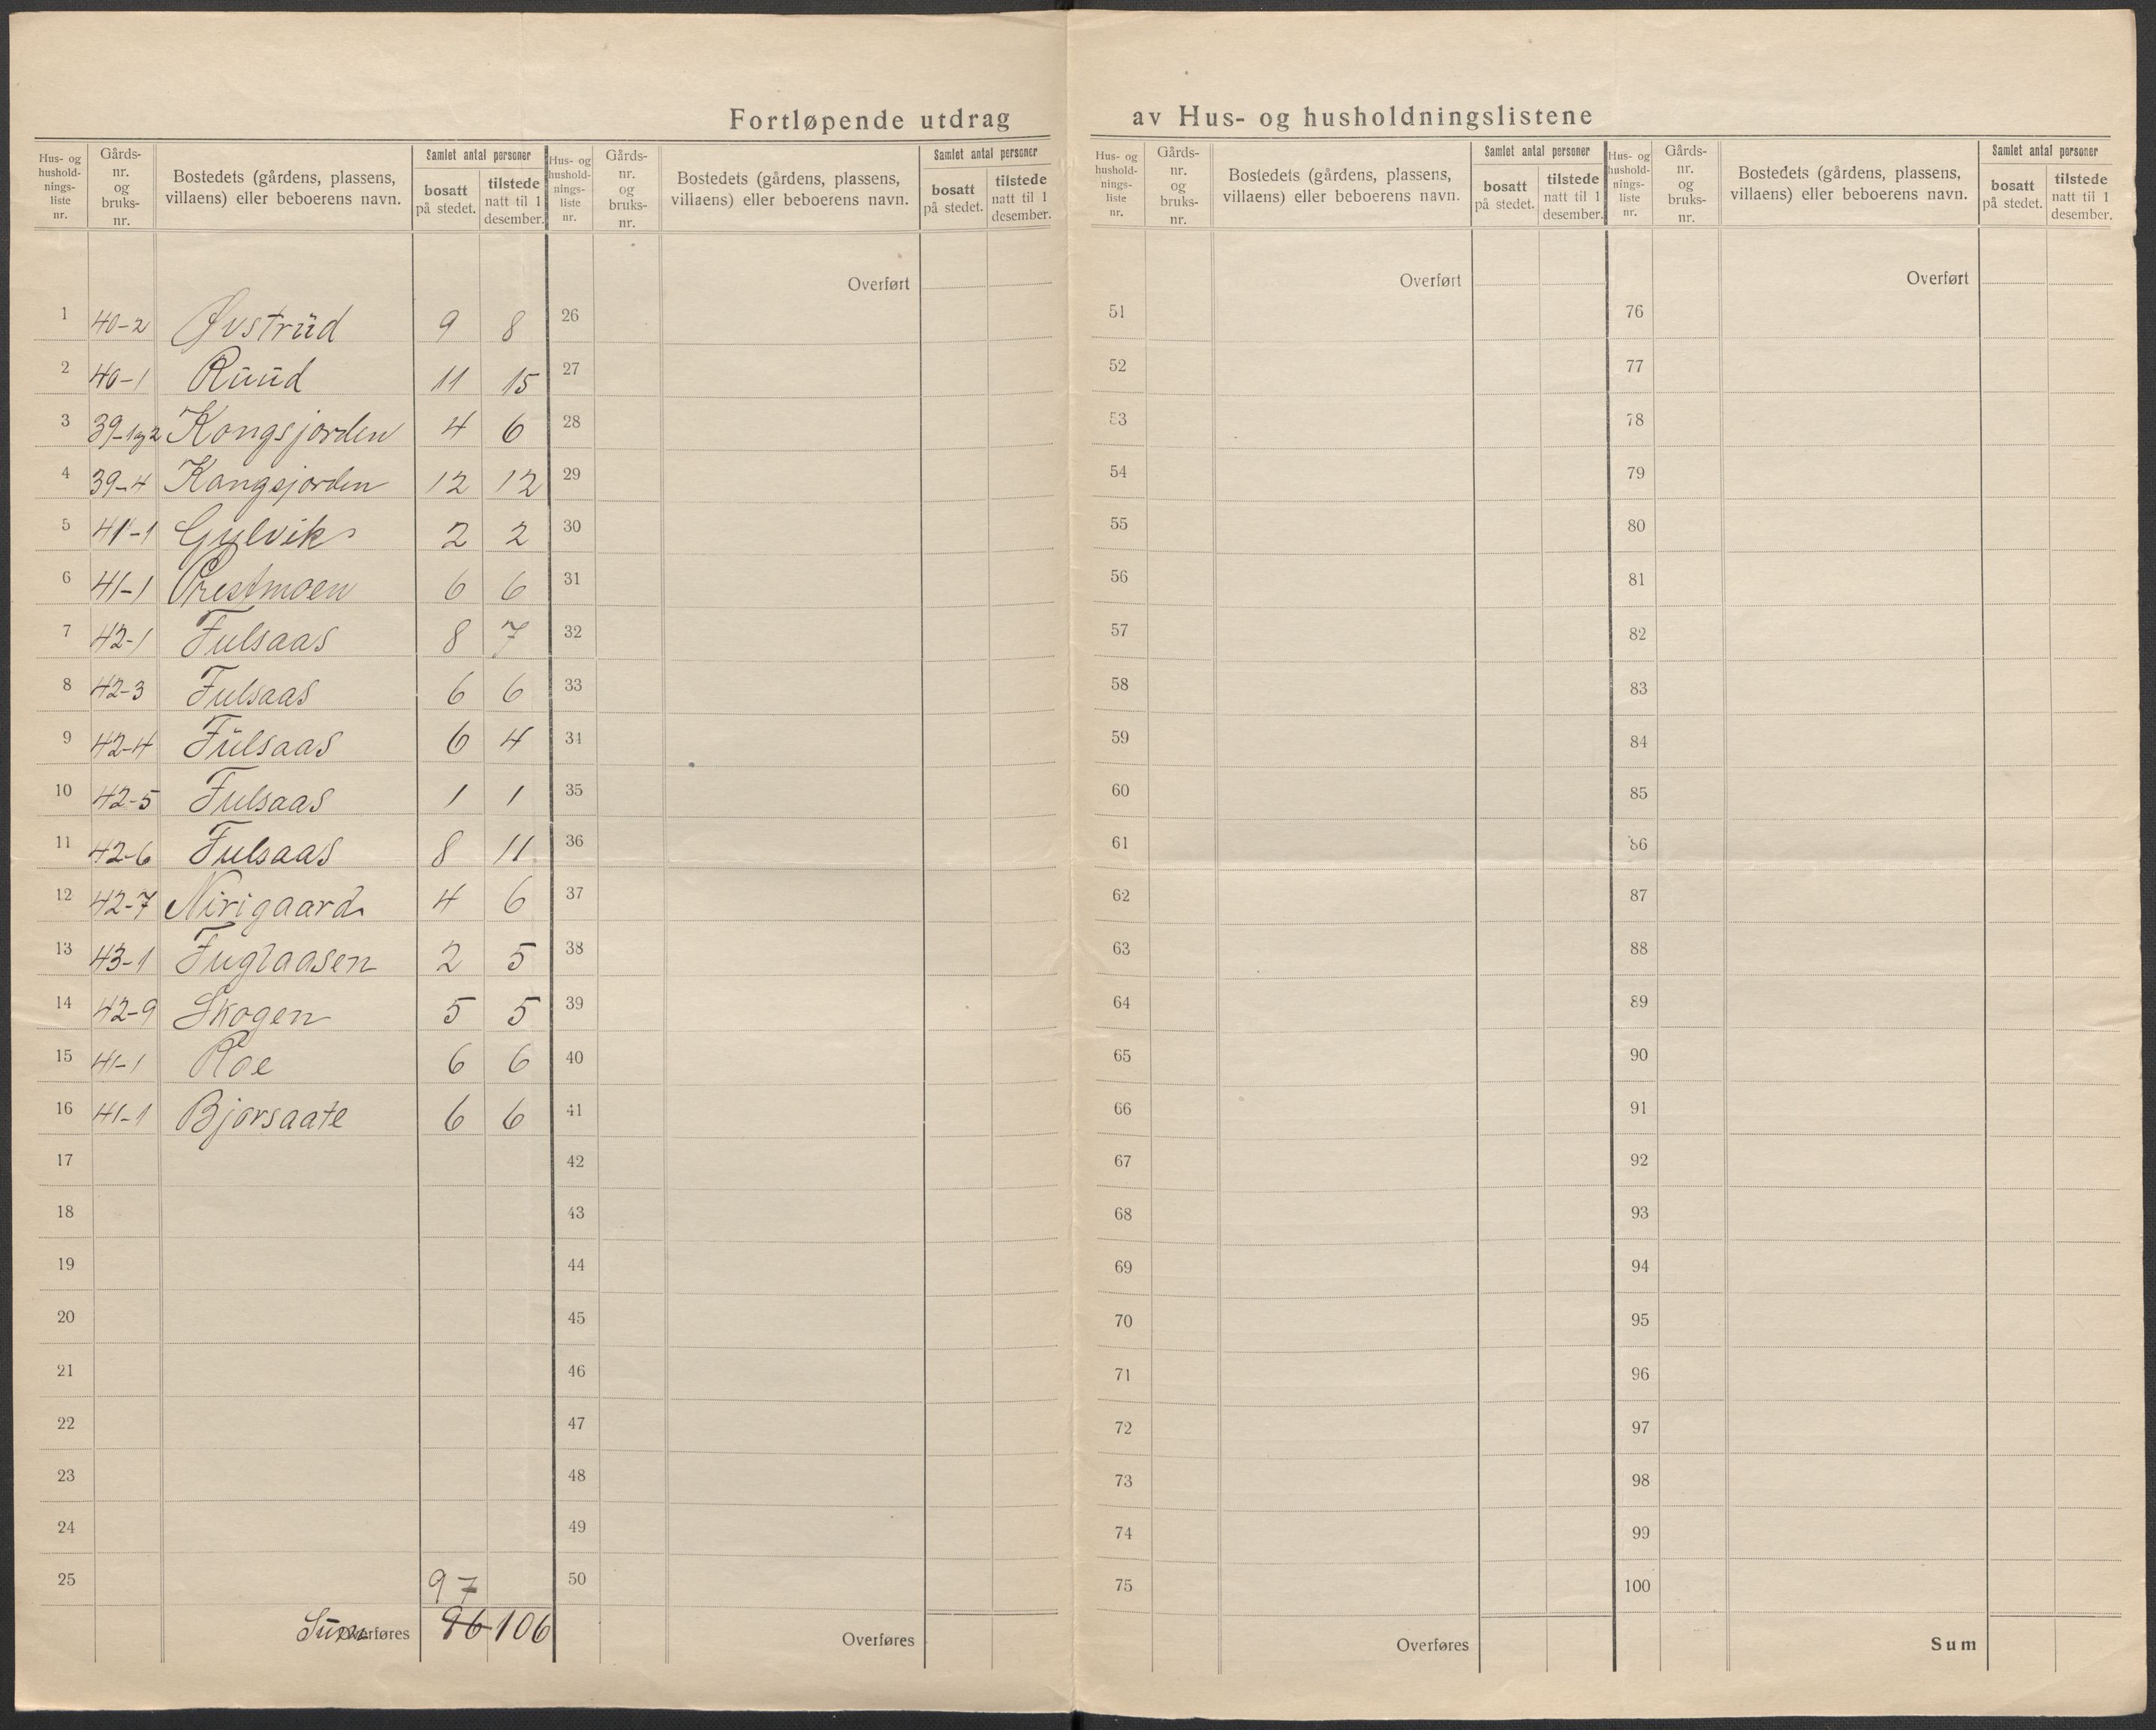 Fortløpende utdrag av Hus- og husholdningslistene
Hus- og hushold-nings-liste nr. Gårds-nr. og bruks-nr. Bostedets (gårdens, plassens, villaens) eller beboerens navn. Samlet antal personer bosatt på stedet. tilstede natt til 1 desember.
1 40-2 Øvstrüd 9 8
2 40-1 Rüüd 11 15
3 39-1og2 Kongsjorden 4 6
4 39-4 Kongsjorden 12 12
5 41-1 Gulvik 2 2
6 41-1 Prestmoen 6 6
7 42-1 Fulsaas 8 7
8 42-3 Fulsaas 6 6
9 42-4 Fülsaas 6 4
10 42-5 Fulsaas 1 1
11 42-6 Fulsaas 8 11
12 42-7 Nirigaard 4 6
13 43-1 Fuglaasen 2 5
14 42-9 Skogen 5 5
15 41-1 Roe 6 6
16 41-1 Bjorsaate 6 6
17
18
19
20
21
22
23
24
25
97
Süm Overføres 96 106
Hus- og hushold-nings-liste nr. Gårds-nr. og bruks-nr. Bostedets (gårdens, plassens, villaens) eller beboerens navn. Samlet antal personer bosatt på stedet. tilstede natt til 1 desember.
Overført
26
27
28
29
30
31
32
33
34
35
36
37
38
39
40
41
42
43
44
45
46
47
48
49
50
Overføres
Hus- og hushold-nings-liste nr. Gårds-nr. og bruks-nr. Bostedets (gårdens, plassens, villaens) eller beboerens navn. Samlet antal personer bosatt på stedet. tilstede natt til 1 desember.
Overført
51
52
53
54
55
56
57
58
59
60
61
62
63
64
65
66
67
68
69
70
71
72
73
74
75
Overføres
Hus- og hushold-nings-liste nr. Gårds-nr. og bruks-nr. Bostedets (gårdens, plassens, villaens) eller beboerens navn. Samlet antal personer bosatt på stedet. tilstede natt til 1 desember.
Overført
76
77
78
79
80
81
82
83
84
85
86
87
88
89
90
91
92
93
94
95
96
97
98
99
100
Sum